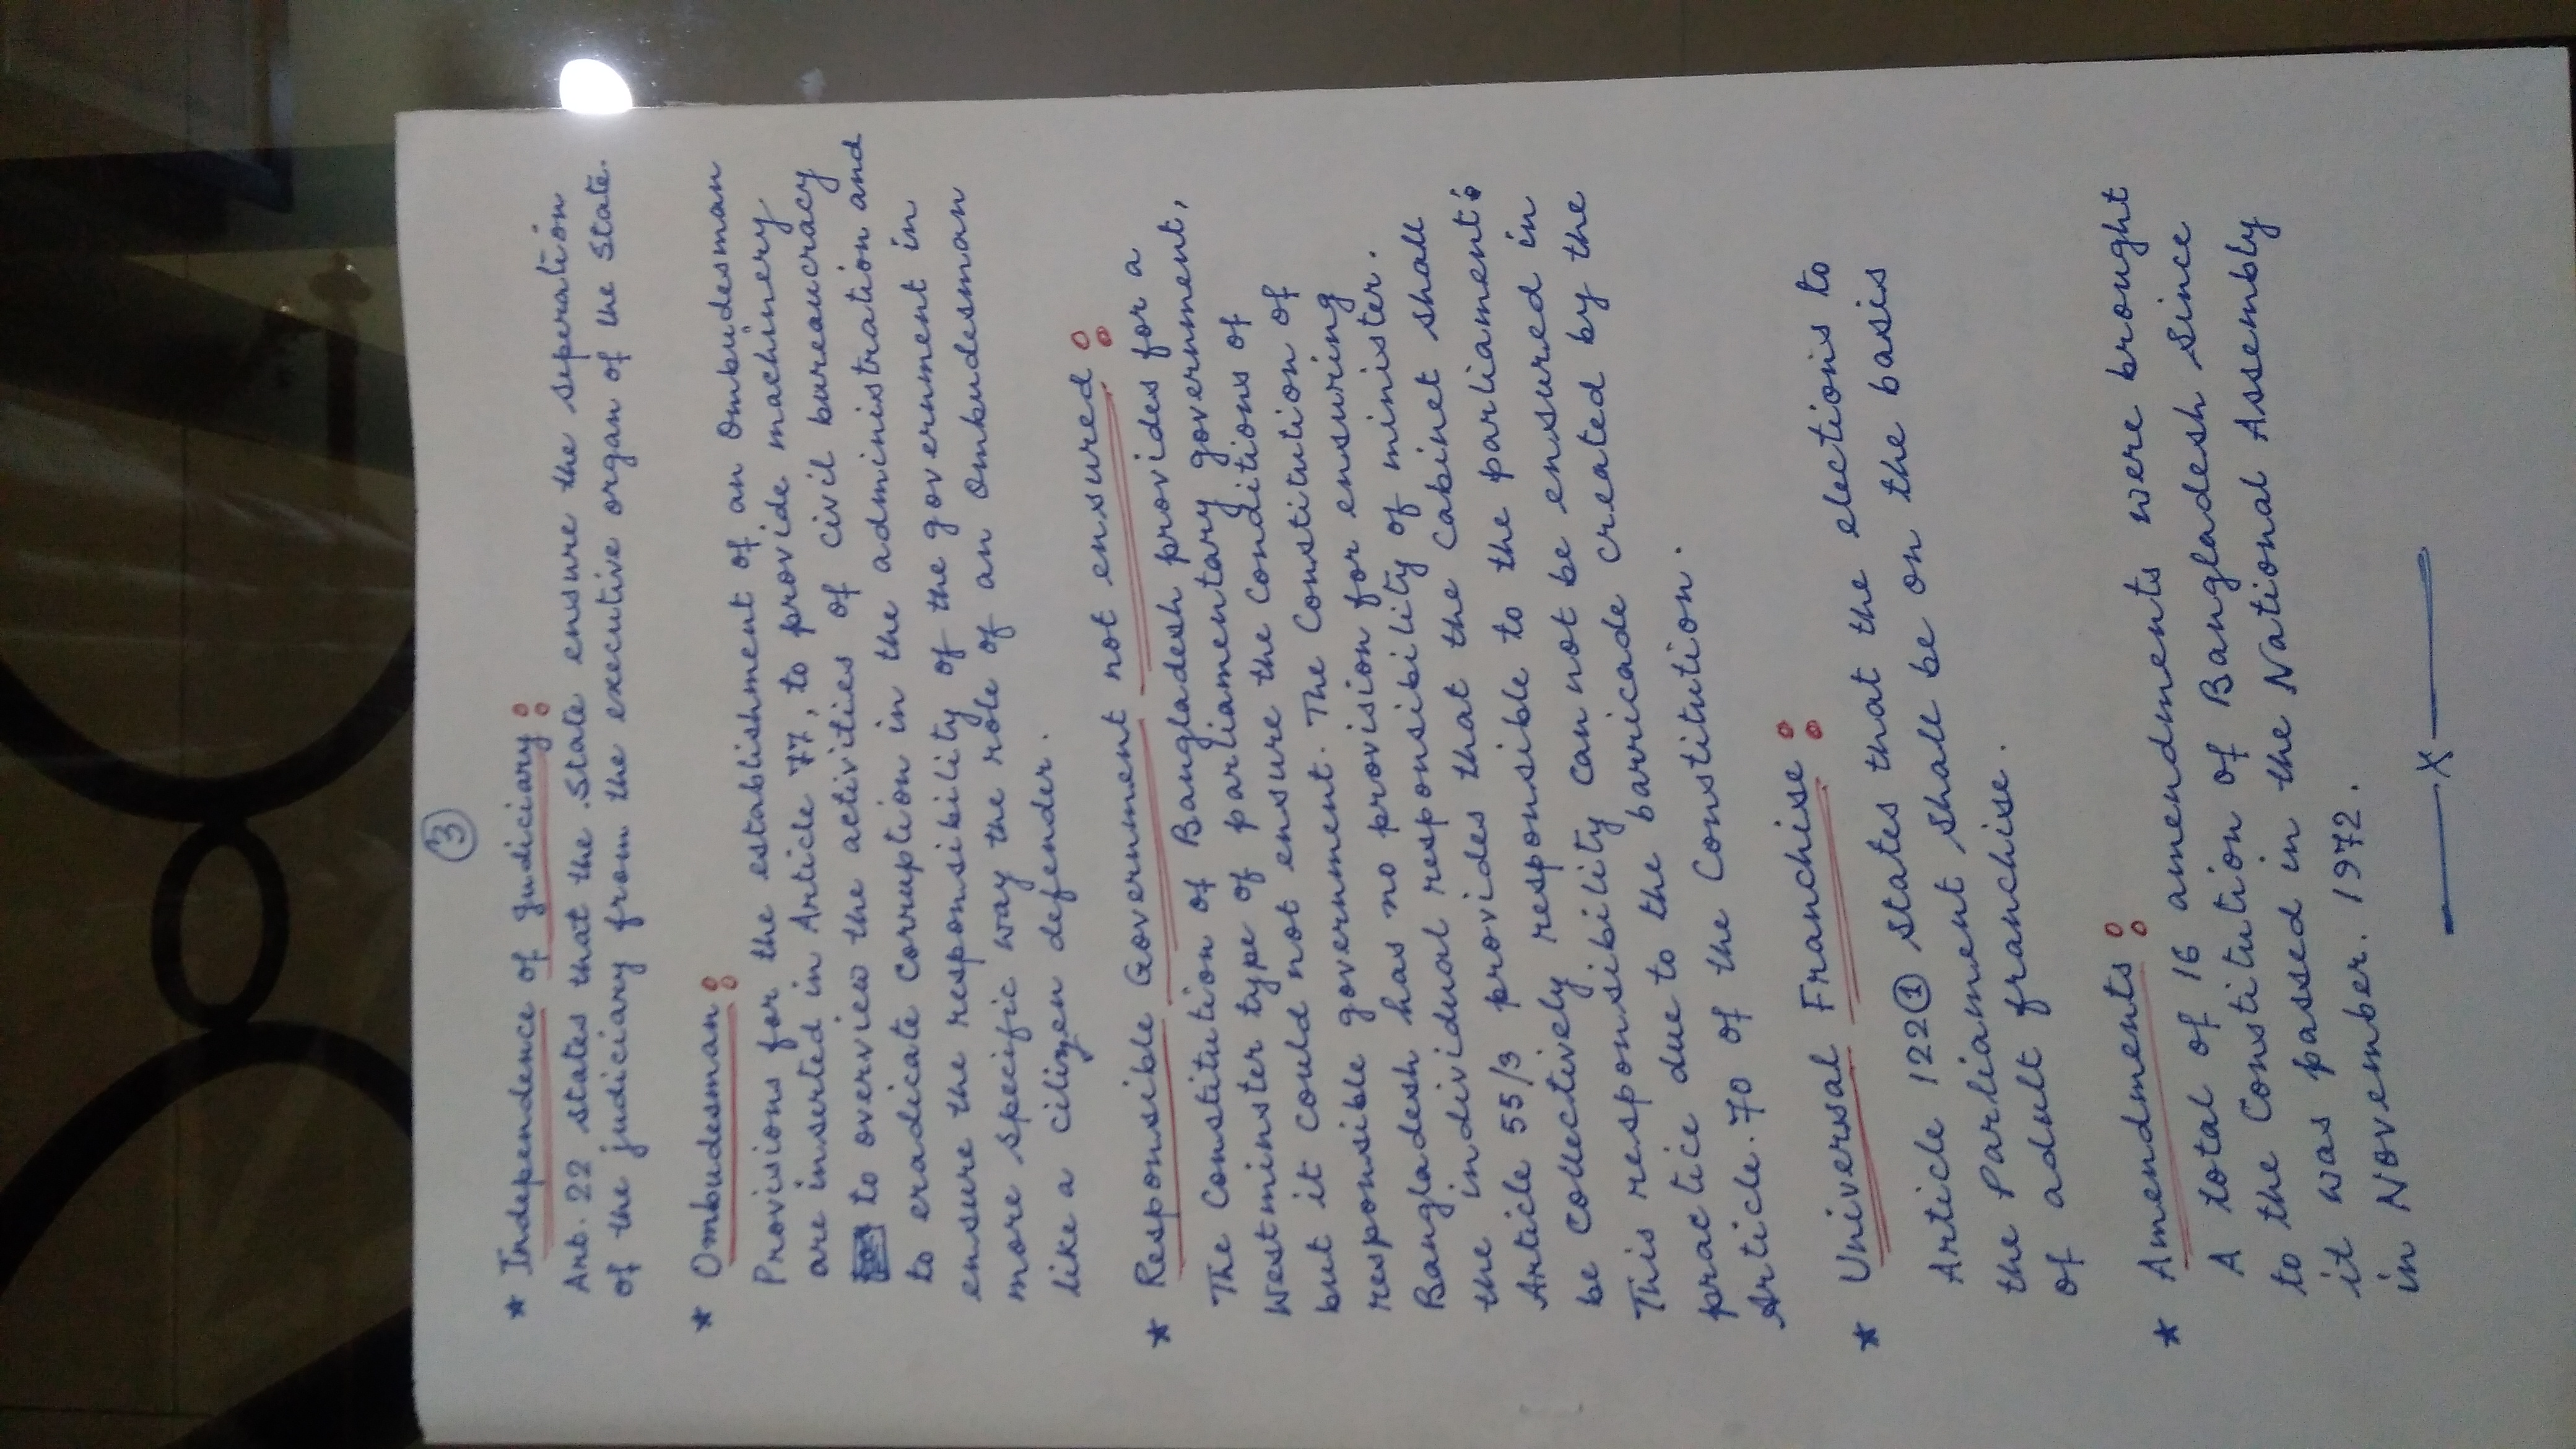 3
* Independence of Judiciary:
Art. 22 states that the State ensure the seperation
of the judiciary from the executive organ of the State.
* Ombudesman:
Provisions for the establishment of an Ombudesman
are inserted in Article 77, to provide machinery
to overview the activities of civil bureaucracy
to eradicate corruption in the administration and
ensure the responsibility of the government in
more specific way the role of an Ombudesman
like a citizen defender.
* Responsible Government not ensured:
The Constitution of Bangladesh provides for a
Westminster type of parliamentary government,
but it could not ensure the Conditions of
responsible government. The Constitution of
Bangladesh has no provision for ensuring
the individual responsibility of minister.
Article 55/3 provides that the Cabinet shall
be collectively responsible to the parliament's
This responsibility can not be ensured in
practice due to the barricade created by the
Article.70 of the Constitution.
* Universal Franchise:
Article 122(1) states that the elections to
the Parliament shall be on the basis
of adult franchise.
* Amendments:
A total of 16 amendments were brought
to the Constitution of Bangladesh since
it was passed in the National Assembly
in November. 1972.
X